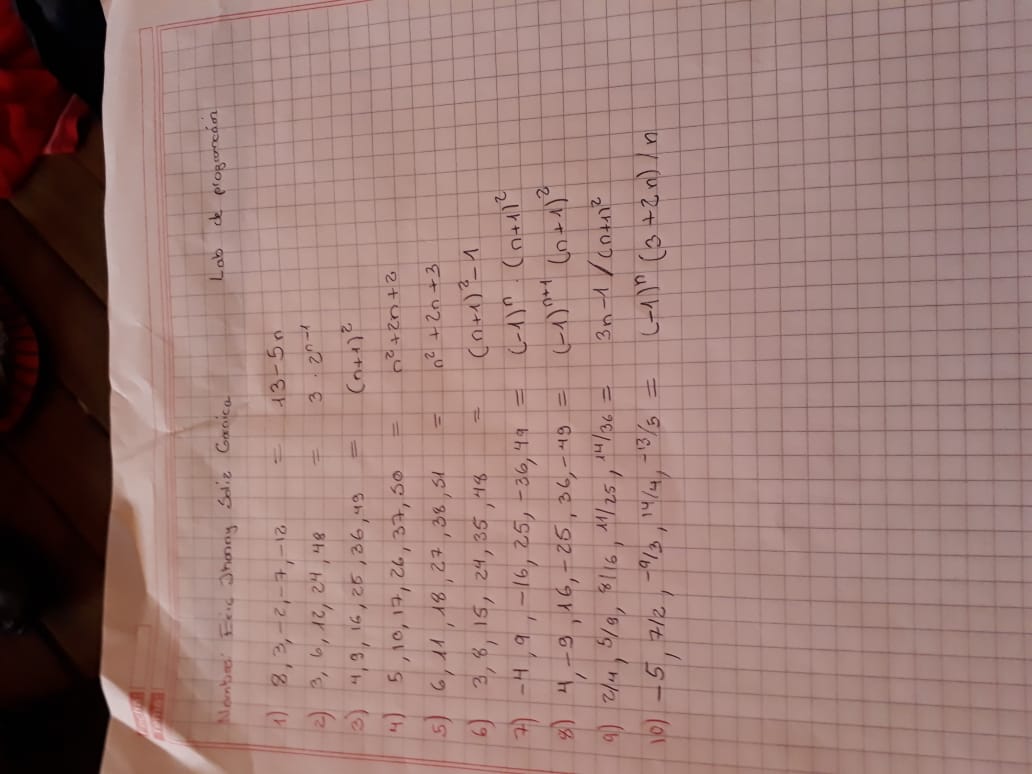 Nombre: Eric Jhonny Soliz Garnica Lab de programación
1) 8, 3, -2, -7, -12 = 13 - 5n
2) 3, 6, 12, 24, 48 = 3 · 2^n-1
3) 4, 9, 16, 25, 36, 49 = (n+1)^2
4) 5, 10, 17, 26, 37, 50 = n^2+2n+2
5) 6, 11, 18, 27, 38, 51 = n^2+2n+3
6) 3, 8, 15, 24, 35, 48 = (n+1)^2-1
7) -4, 9, -16, 25, -36, 49 = (-1)^n · (n+1)^2
8) 4, -9, 16, -25, 36, -49 = (-1)^n+1 (n+1)^2
9) 2/4, 5/9, 8/16, 11/25, 14/36 = 3n-1/(n+1)^2
10) -5, 7/2, -9/3, 14/4, -13/5 = (-1)^n (3+2n)/n